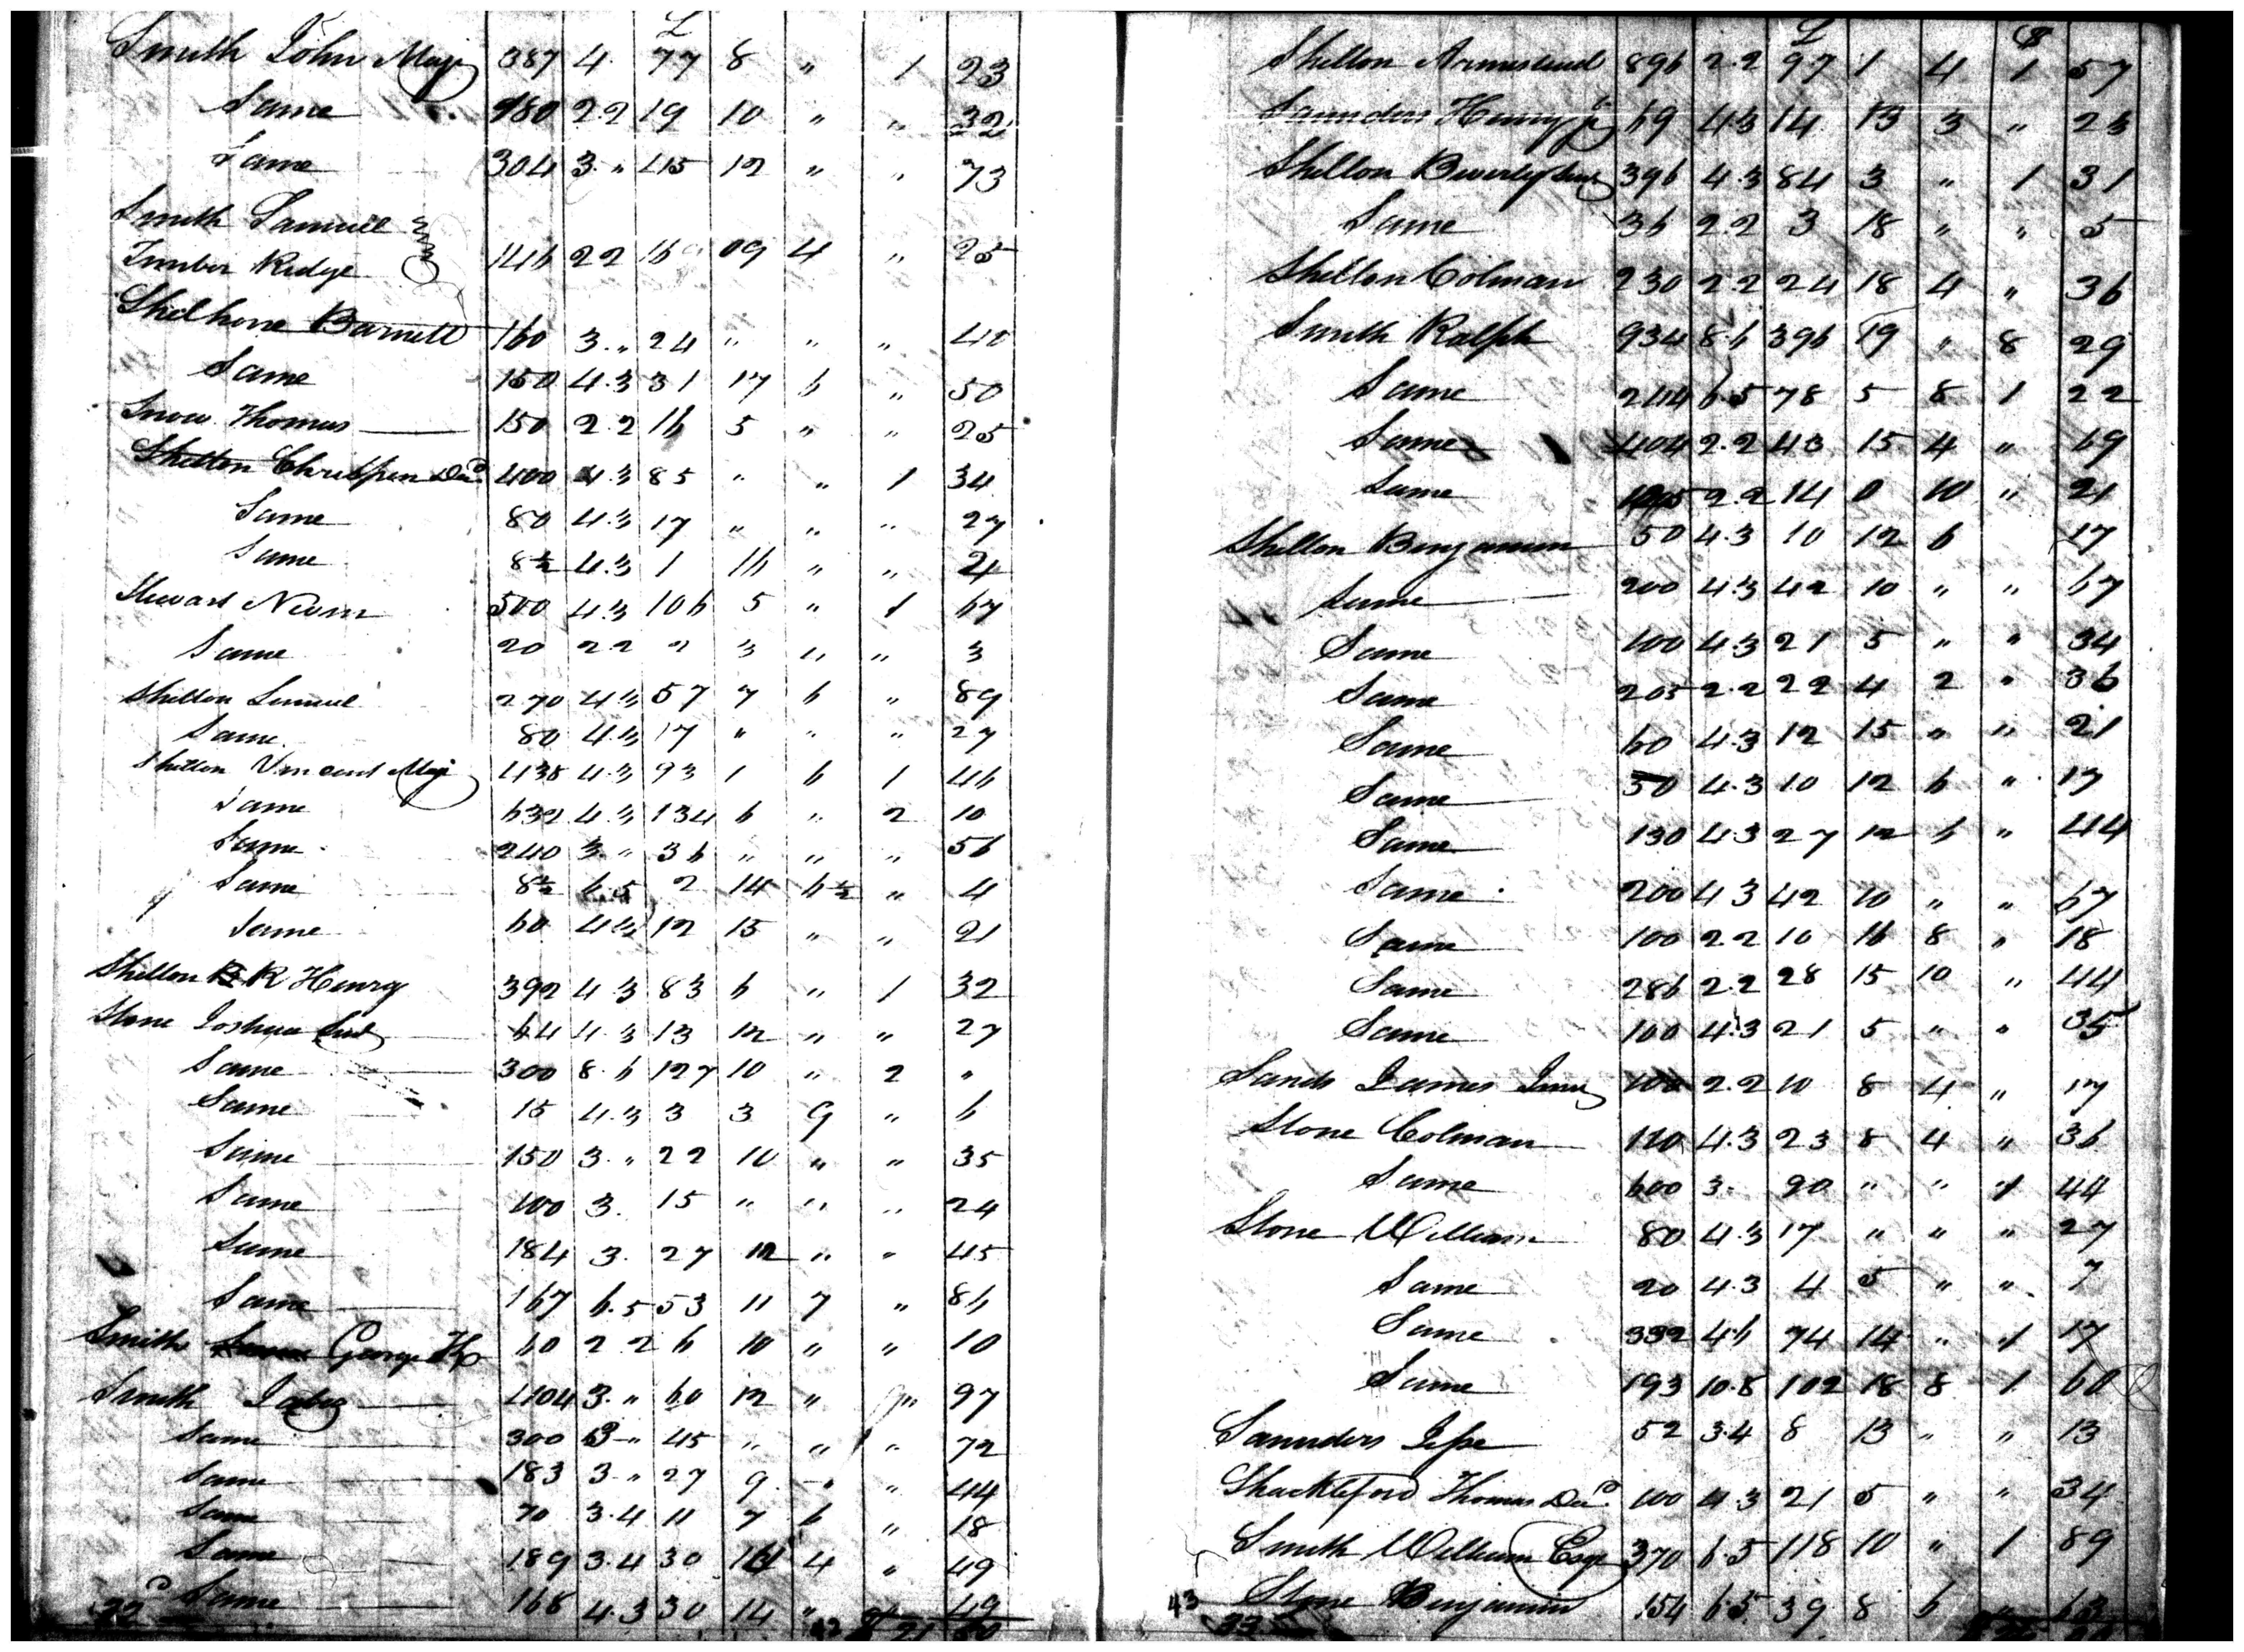 £
Smith John Maj 387 4. 77 8 " 1 23
Same 180 2.2 19 10 " " 32
Same 304 3. " 45 12 " " 73
Smith Samuel
Timber Ridge 146 2 2 16 09 4 " 25
Shelhorse Barnett 160 3. " 24 " " " 40
Same 150 4.3 31 17 6 " 50
Snow Thomas 150 2.2 16 5 " " 25
Shelton Chrispen Decd 400 4.3 85 " " 1 34
Same 80 4.3 17 " " " 27
Same 8½ 4.3 1 16 " " 2
Stewart 500 4.3 106 5 " 1 67
Same 20 2 2 2 3 " " 3
Shelton Lemuel 270 4.3 57 7 6 " 89
Same 80 4.3 17 " " " 27
Shelton Vincent Maj 438 4.3 93 1 6 1 46
Same 632 4.3 134 6 " 2 10
Same 240 3. " 36 " " " 56
Same 8½ 6.5 2 14 6½ " 4
Same 60 4.3 12 15 " " 21
Shelton R Henry 392 4.3 83 6 " 1 32
Stone Joshua 64 4.3 13 12 " " 27
Same 300 8.6 127 10 " 2 "
Same 15 4.3 3 3 9 " 6
Same 150 3. " 22 10 " " 35
Same 100 3. 15 " " " 24
Same 184 3. 27 12 " " 45
Same 167 6.5 53 11 7 " 86
Smith George 60 2 2 6 10 " " 10
Smith Jabez 404 3. " 60 12 " " 97
Same 300 3 " 45 " " " 72
Same 183 3 " 27 9 " " 44
Same 70 3.4 11 7 6 " 18
Same 189 3.4 30 14 4 " 49
Same 168 4.3 30 14 " 49
£ $
Shelton Armestead 896 2.2 97 1 4 1 57
Saunders Henry 69 4.3 14 13 3 " 23
Shelton Beverly 396 4.3 84 3 " 1 31
Same 36 2.2 3 18 " " 5
Shelton Colman 230 2.2 24 18 4 " 36
Smith Ralph 934 8.6 396 19 " 8 29
Same 244 6.5 78 5 8 1 22
Same 404 2.2 43 15 4 " 69
Same 2.2 14 0 10 " 21
Shelton Benjamin 50 4.3 10 12 6 17
Same 200 4.3 42 10 " " 67
Same 100 4.3 21 5 " " 34
Same 205 2.2 22 4 2 " 36
Same 60 4.3 12 15 " " 21
Same 50 4.3 10 12 6 " 17
Same 130 4.3 27 12 6 " 44
Same 200 4 3 42 10 " " 67
Same 100 2 2 10 16 8 " 18
Same 286 2.2 28 15 10 " 44
Same 100 4.3 21 5 " " 35
Sands James 100 2.2 10 8 4 " 17
Stone Colman 110 4.3 23 8 4 " 36
Same 600 3. 90 " " 1 44
Stone William 80 4.3 17 " " " 27
Same 20 4.3 4 5 " " 7
Same 332 4.6 74 14 " 1 17
Same 193 10.8 102 18 8 1 60
Saunders Jesse 52 3.4 8 13 " " 13
Shackleford Thomas Decd 100 4.3 21 5 " " 34
Smith William Esqr 370 6.5 118 10 " 1 89
43 Stone Benjamin 154 6.5 39 8 6 " 63